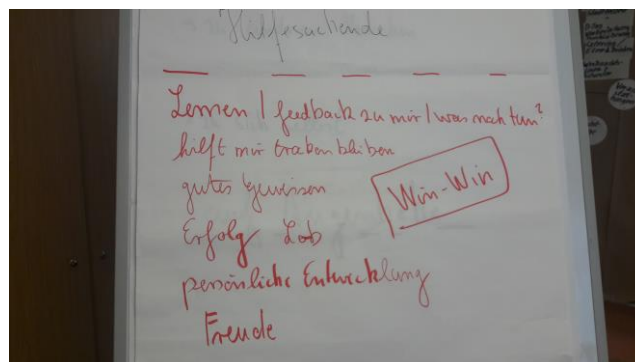 Hilfesuchende
Lernen / feedback zu mir / was noch tun?
hilft mir traben bleiben
gutes Gewissen
Win-Win
Erfolg Lob
persönliche Entwicklung
Freude